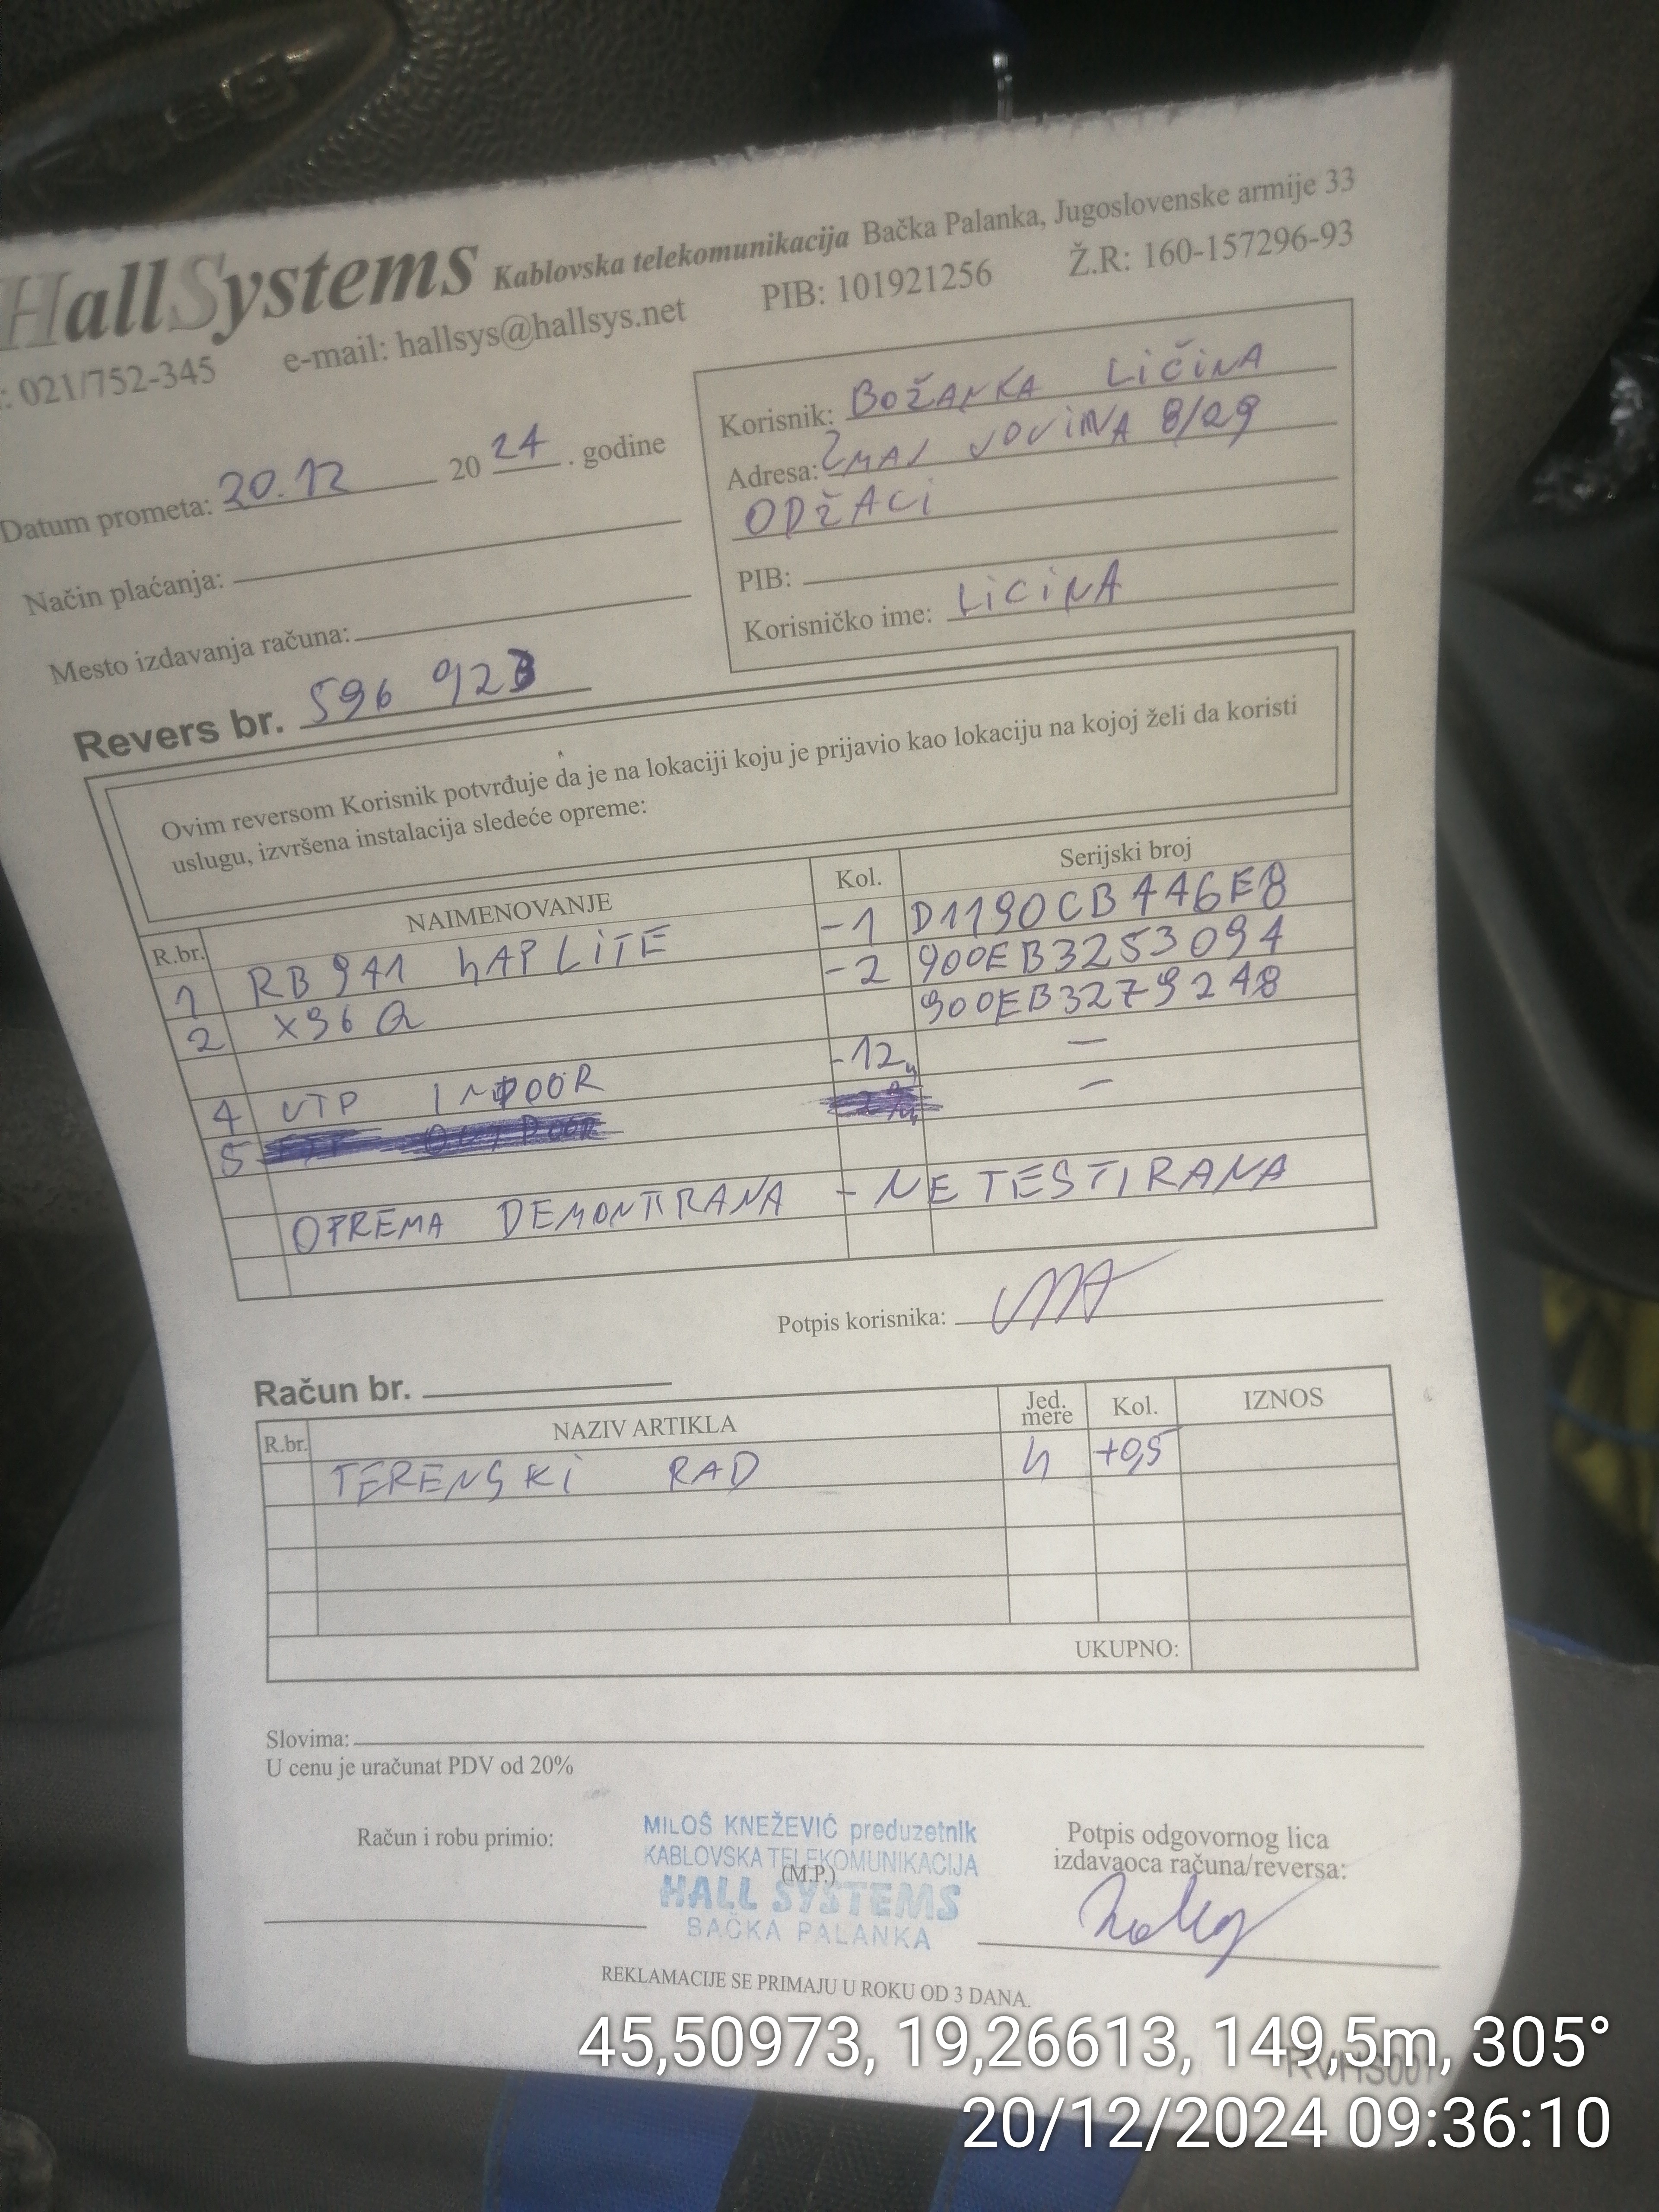 HallSystems Kablovska telekomunikacija Bačka Palanka, Jugoslovenske armije 33
: 021/752-345 e-mail: hallsys@hallsys.net PIB: 101921256 Ž.R: 160-157296-93
Datum prometa: 20.12 20 24 . godine
Način plaćanja:
Mesto izdavanja računa:
Korisnik: BOŽANKA LIČINA
Adresa: ZMAJ JOVINA 8/29
ODŽACI
PIB:
Korisničko ime: LICINA
Revers br. 596 923
Ovim reversom Korisnik potvrđuje da je na lokaciji koju je prijavio kao lokaciju na kojoj želi da koristi
uslugu, izvršena instalacija sledeće opreme:
R.br. NAIMENOVANJE Kol. Serijski broj
1 RB 941 hAP LITE -1 D1190CB446E8
2 X96 Q -2 900EB3253094
900EB3279248
4 UTP INDOOR -12m –
5 OUTDOOR –
OPREMA DEMONTIRANA - NETESTIRANA
Potpis korisnika:
Račun br.
R.br. NAZIV ARTIKLA Jed. mere Kol. IZNOS
TERENSKI RAD h +0,5
UKUPNO:
Slovima:
U cenu je uračunat PDV od 20%
Račun i robu primio:
MILOŠ KNEŽEVIĆ preduzetnik
KABLOVSKA TELEKOMUNIKACIJA
(M.P.)
HALL SYSTEMS
BAČKA PALANKA
Potpis odgovornog lica
izdavaoca računa/reversa:
REKLAMACIJE SE PRIMAJU U ROKU OD 3 DANA.
RVHS001
45,50973, 19,26613, 149,5m, 305°
20/12/2024 09:36:10